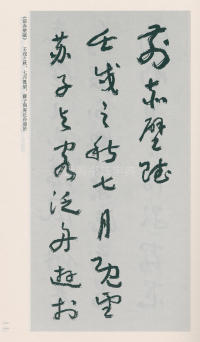 前赤壁赋
壬戌之秋七月既望
苏子与客泛舟游于
《前赤壁赋》 壬戌之秋，七月既望，苏子与客泛舟游於